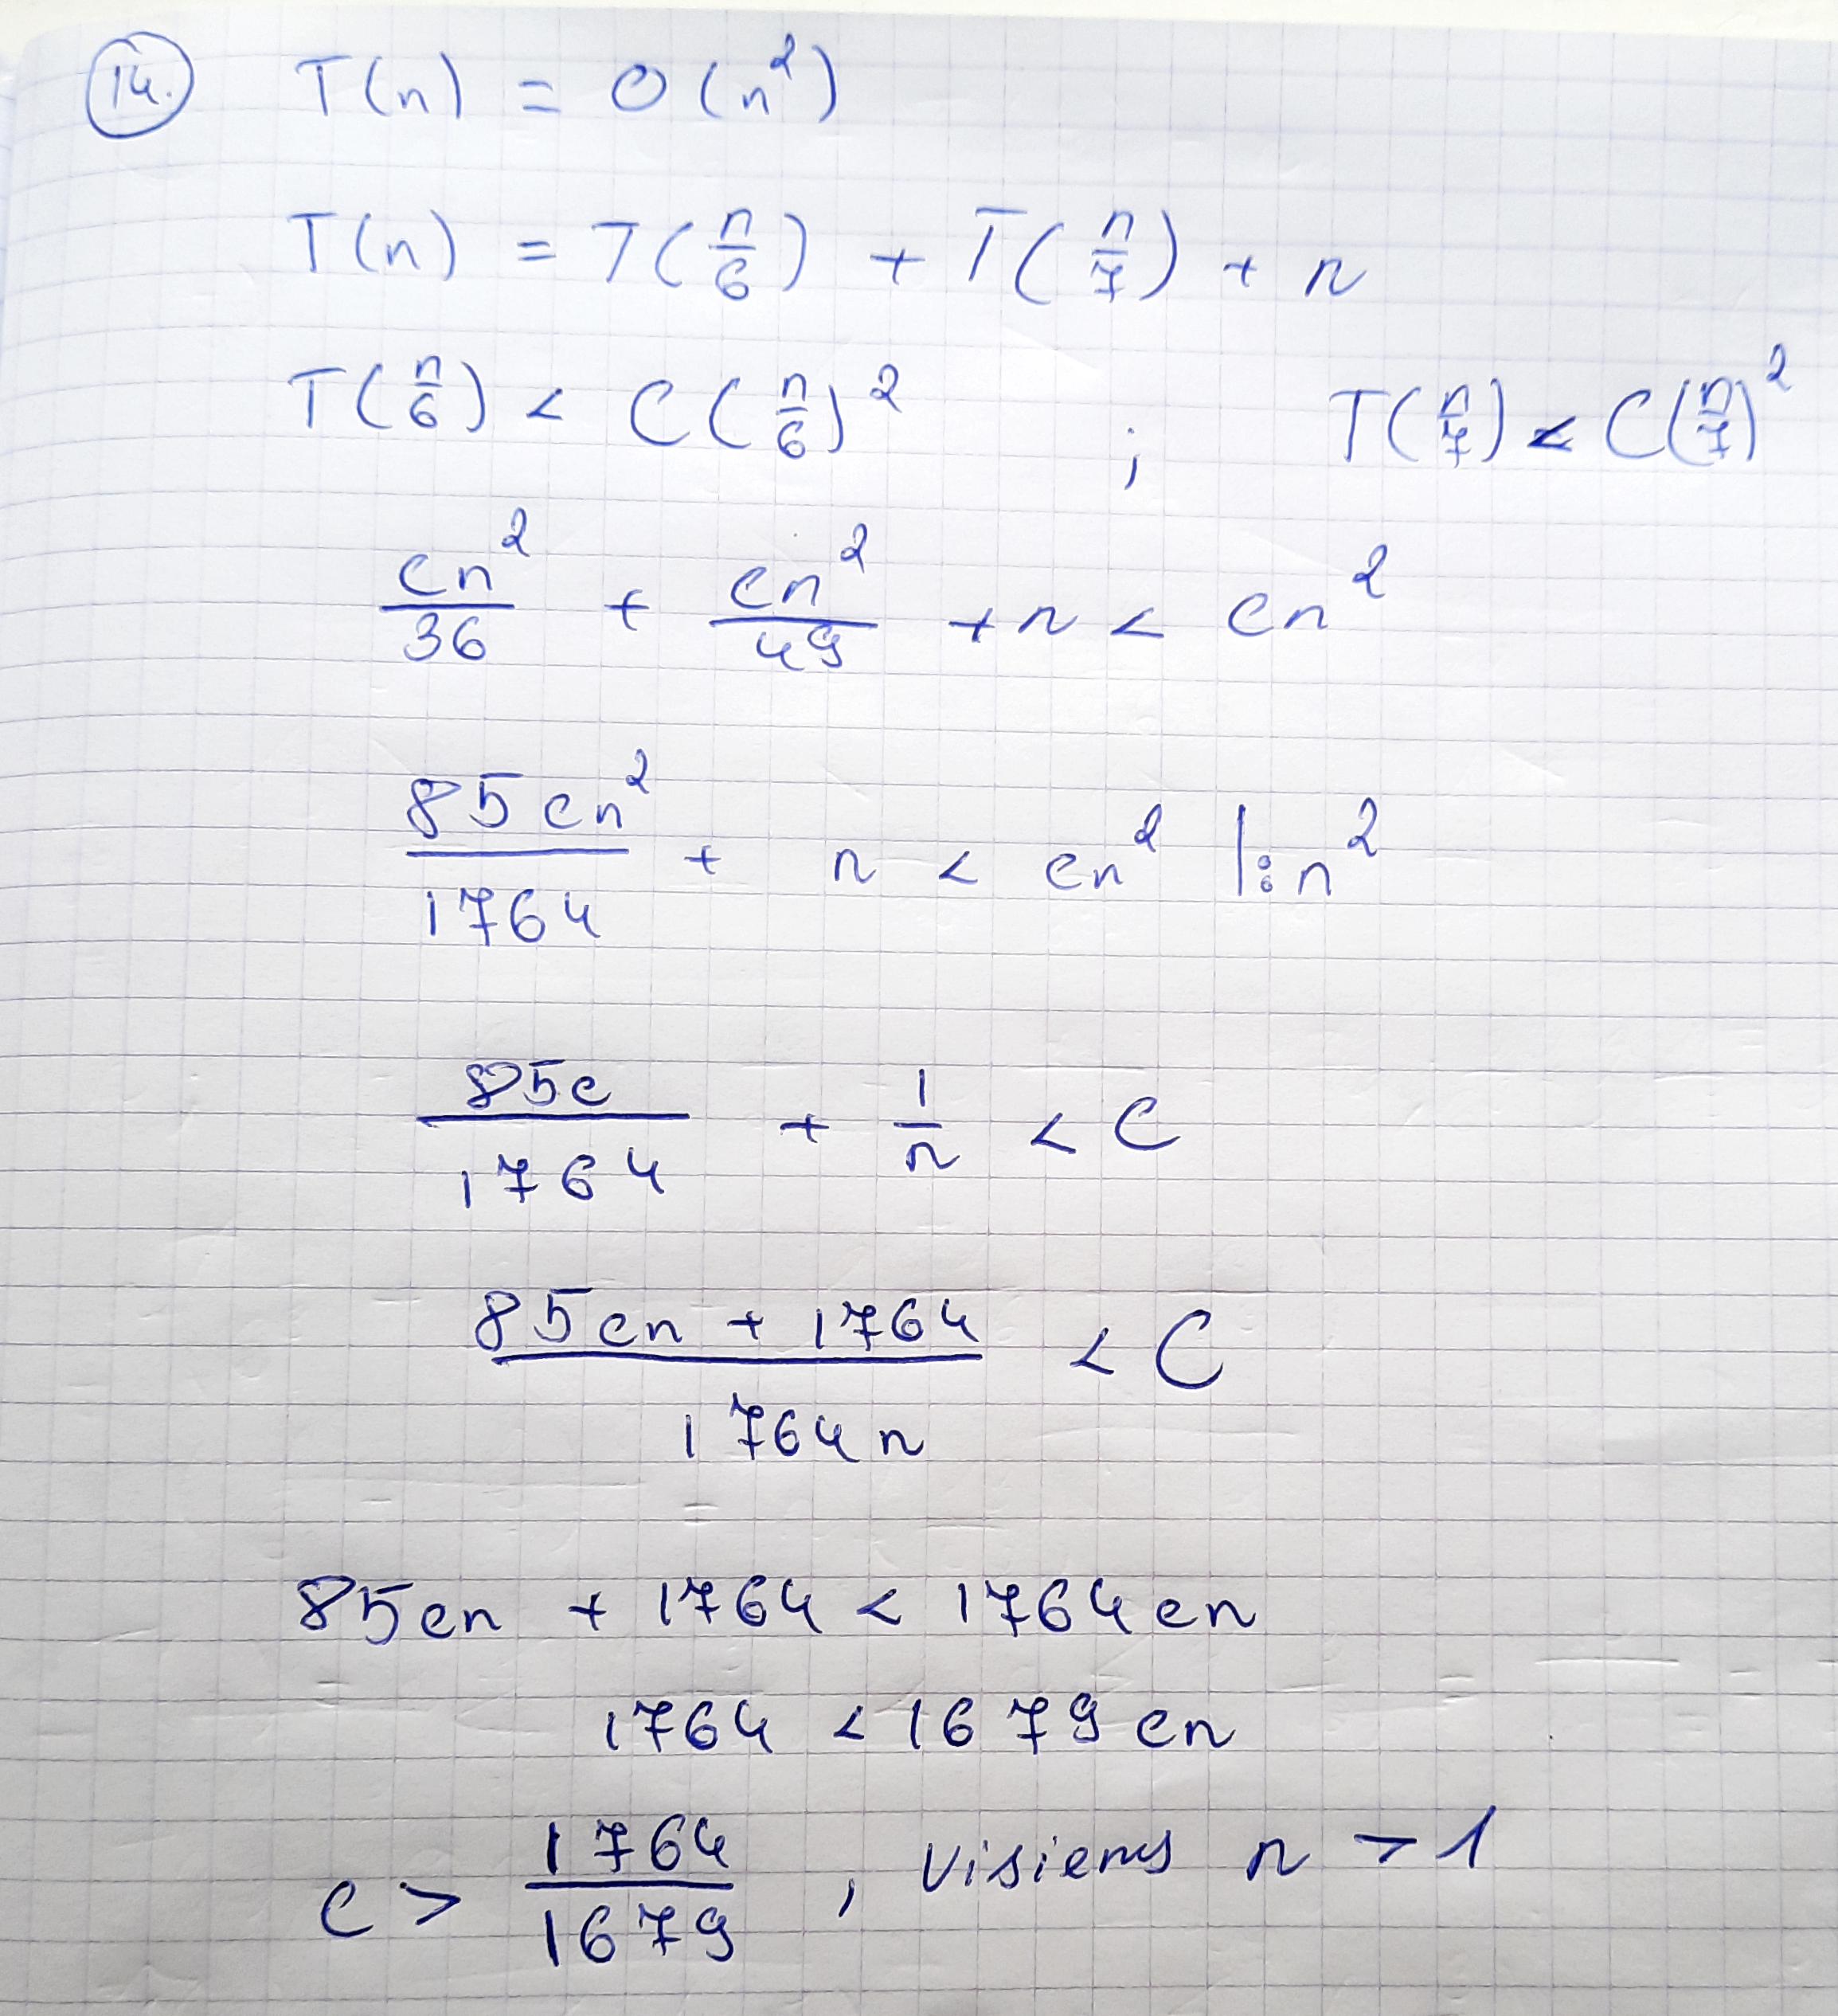 14. T(n) = O(n²)
T(n) = T(n/6) + T(n/7) + n
T(n/6) < C(n/6)² ; T(n/7) < C(n/7)²
cn²/36 + cn²/49 + n < cn²
85cn²/1764 + n < cn² |:n²
85c/1764 + 1/n < C
(85cn + 1764)/1764n < C
85cn + 1764 < 1764cn
1764 < 1679cn
c > 1764/1679 , visiems n > 1